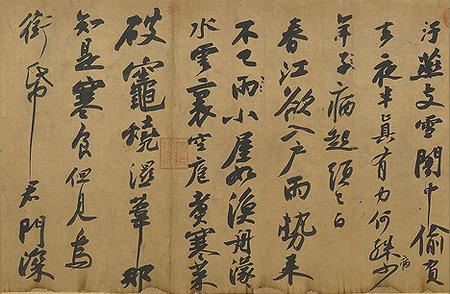 汙燕支雪闇中偷負
去夜半真有力何殊少
病
年子病起頭已白
春江欲入戶雨勢來
不已雨小屋如漁舟濛
水雲裏空庖煮寒菜
破竈燒濕葦那
知是寒食但見烏
銜帋君門深